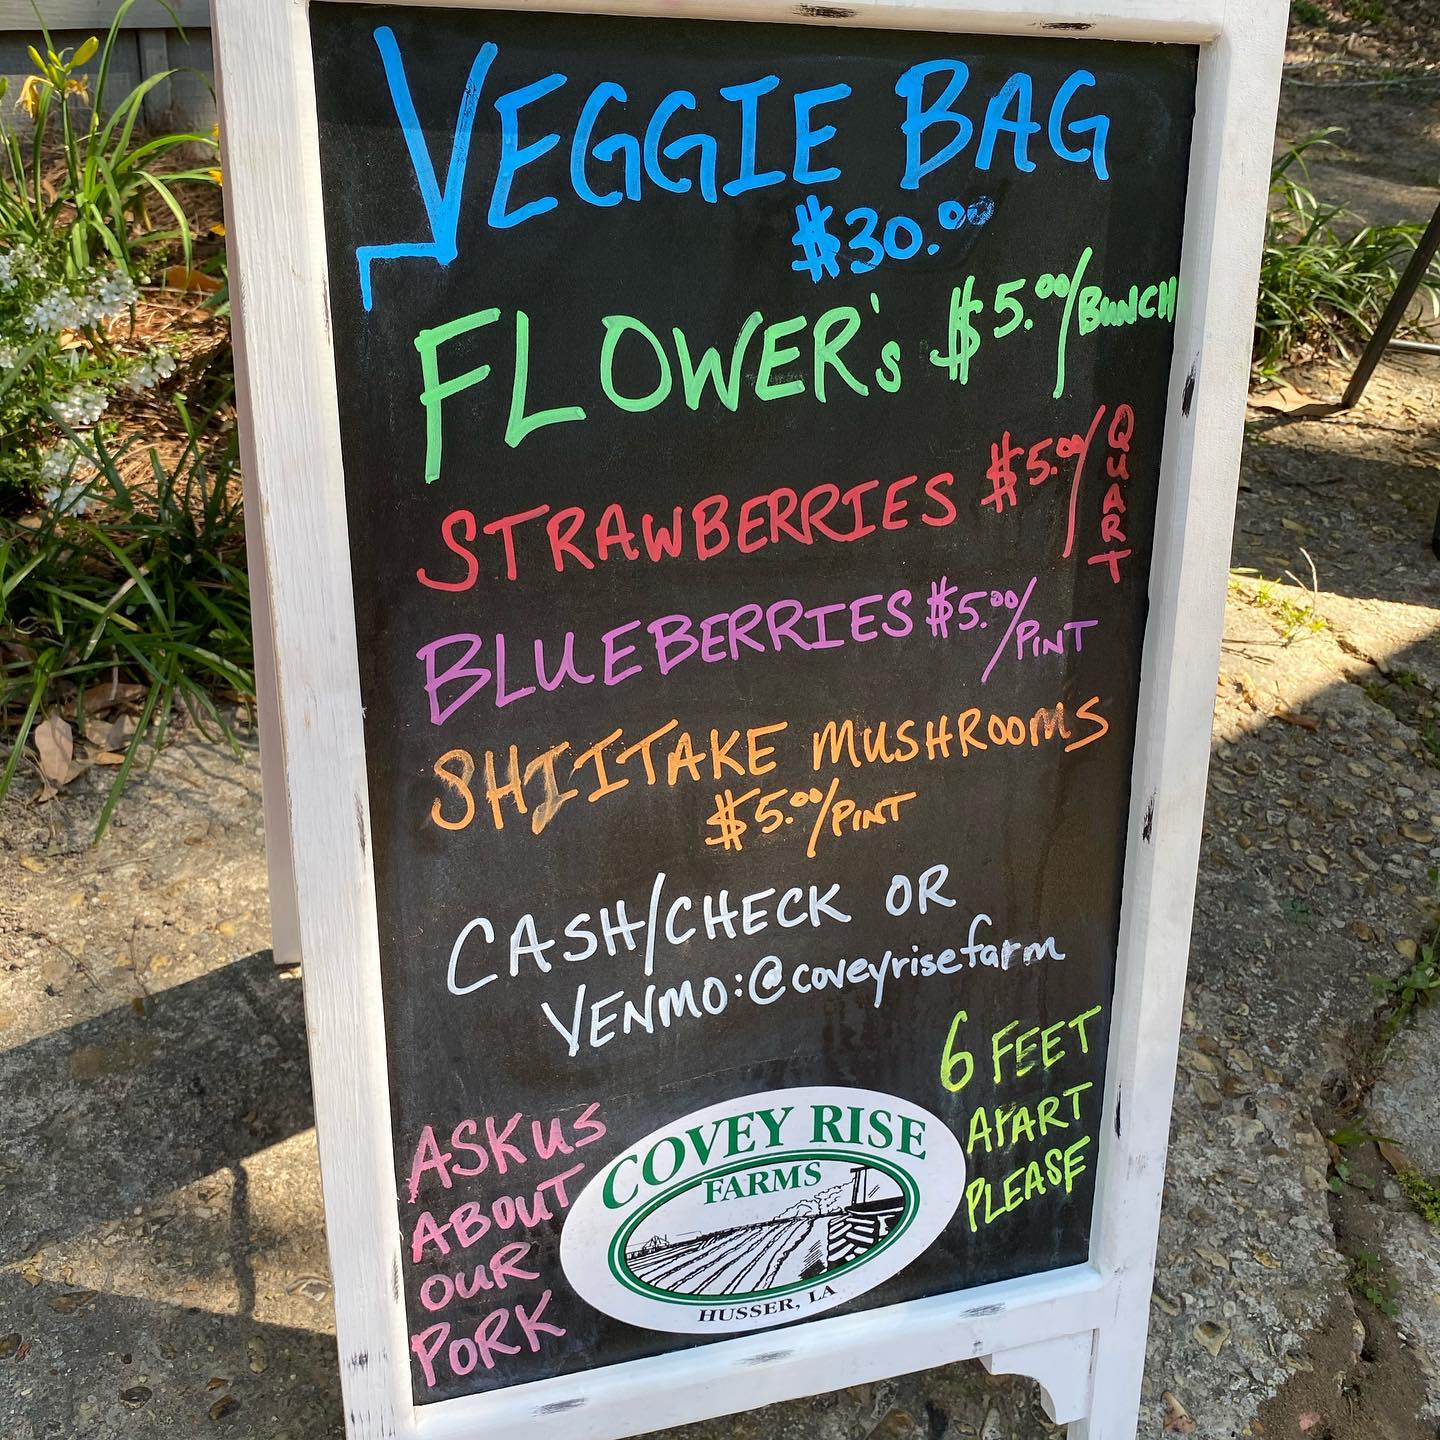 VEGGIE BAG
$30.00
FLOWER's $5.00/BUNCH
STRAWBERRIES $5.00/QUART
BLUEBERRIES $5.00/PINT
SHIITAKE MUSHROOMS
$5.00/PINT
CASH/CHECK OR
VENMO:@coveyrisefarm
6 FEET
APART
PLEASE
ASK US
ABOUT
OUR
PORK
COVEY RISE
FARMS
HUSSER, LA